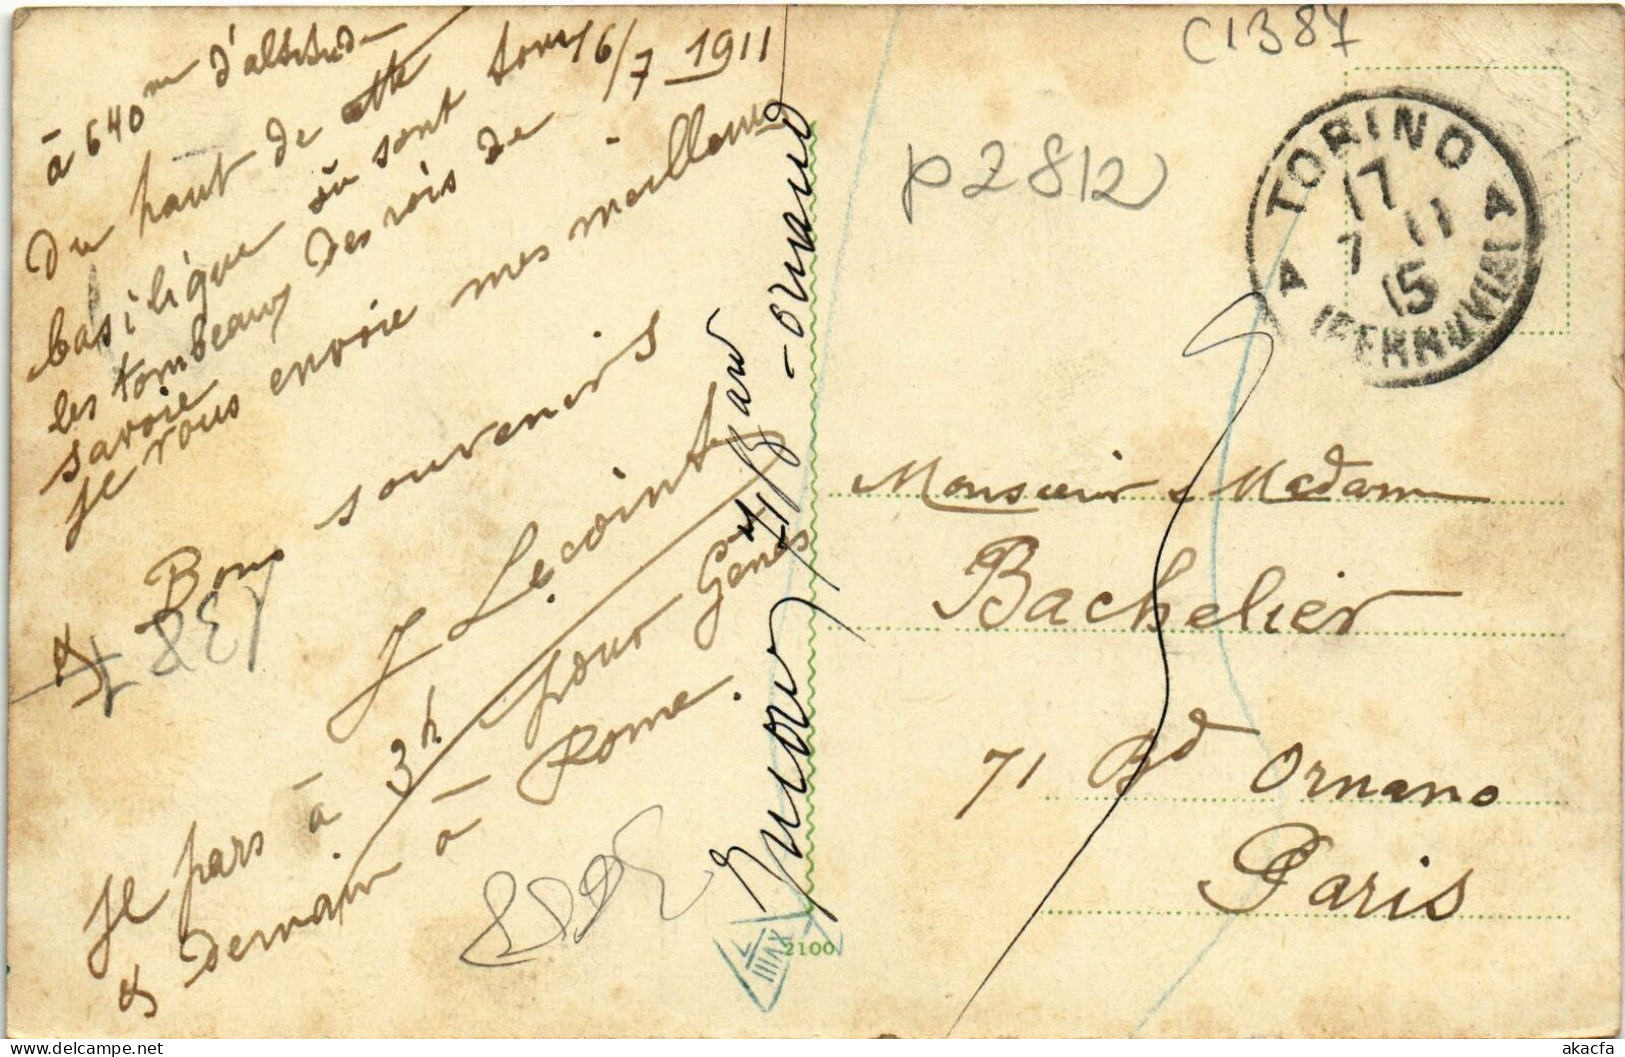 à 640 m d'altitude
16/7 1911
Du haut de cette
basilique où sont tous
les tombeaux des rois de
savoie
je vous envoie mes meilleurs
& Bons souvenirs
J Lecointe
Je pars à 3h pour Gênes
& demain à Rome.
71 Bard
-ornano
C1387
p2812
TORINO
17
7 11
15
(FERROVIA)
Monsieur & Madame
Bachelier
71 Bd Ornano
Paris
XVIII
2100
akacfa
delcampe.net